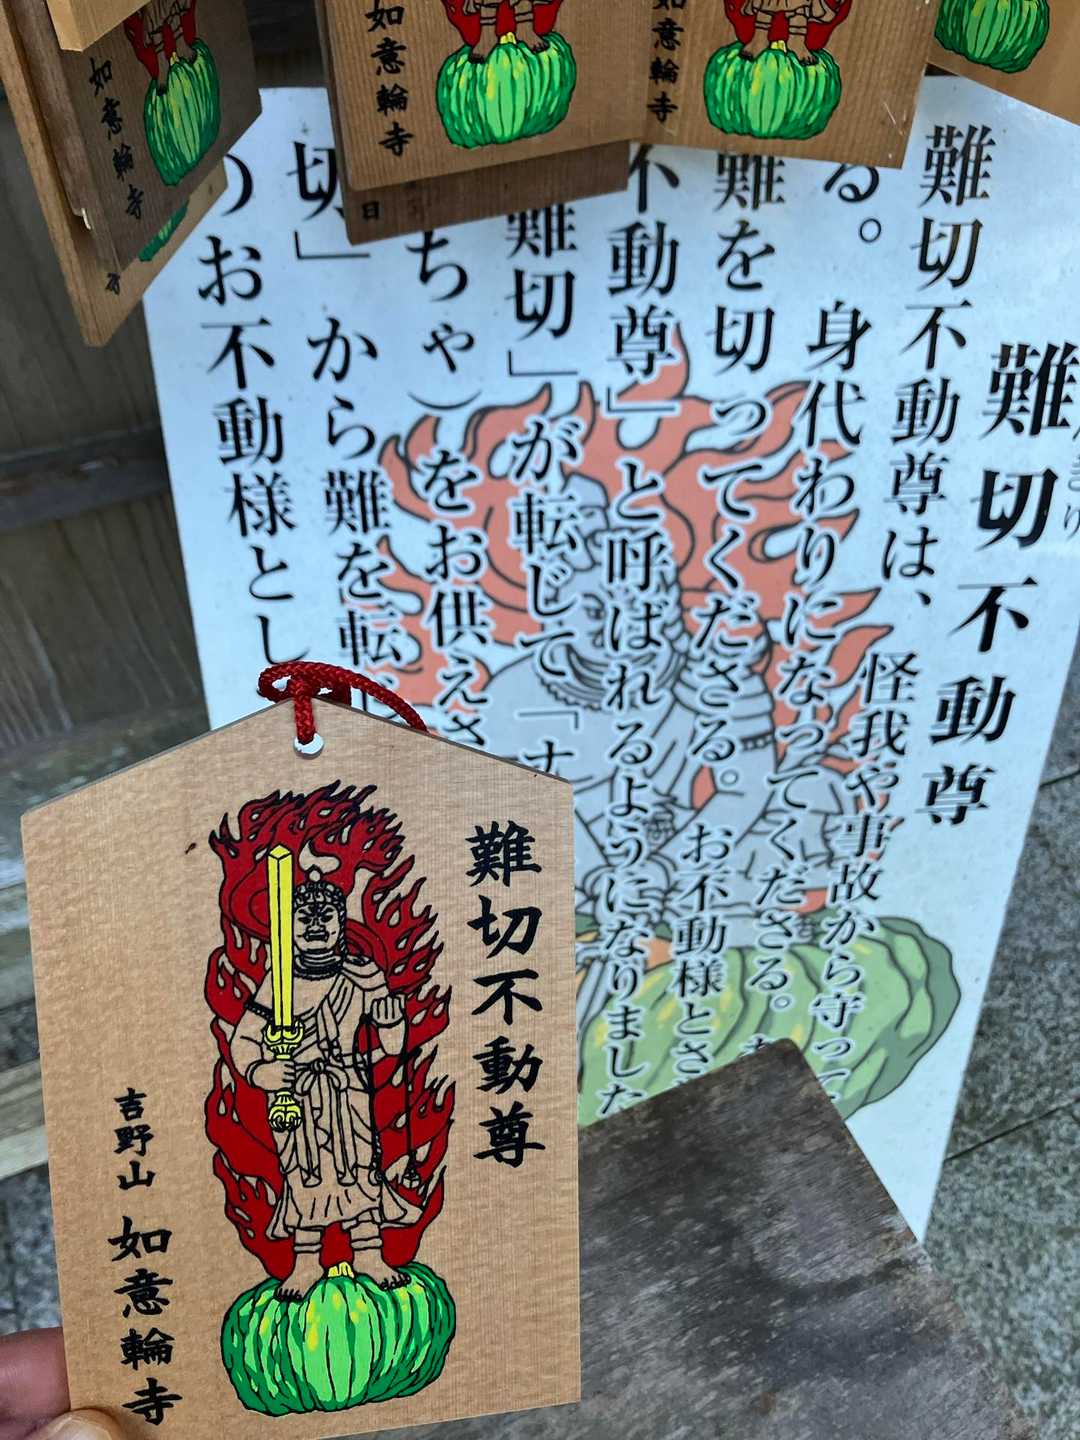 難切不動尊
難切不動尊は、怪我や事故から守って
る。身代わりになってくださる。
難を切ってくださる。お不動様とさ
不動尊」と呼ばれるようになりました
難切」が転じて「
ちゃ）をお供えさ
切」から難を転
のお不動様とし
難切不動尊
吉野山 如意輪寺
如意輪寺
如意輪寺
如意輪寺
日